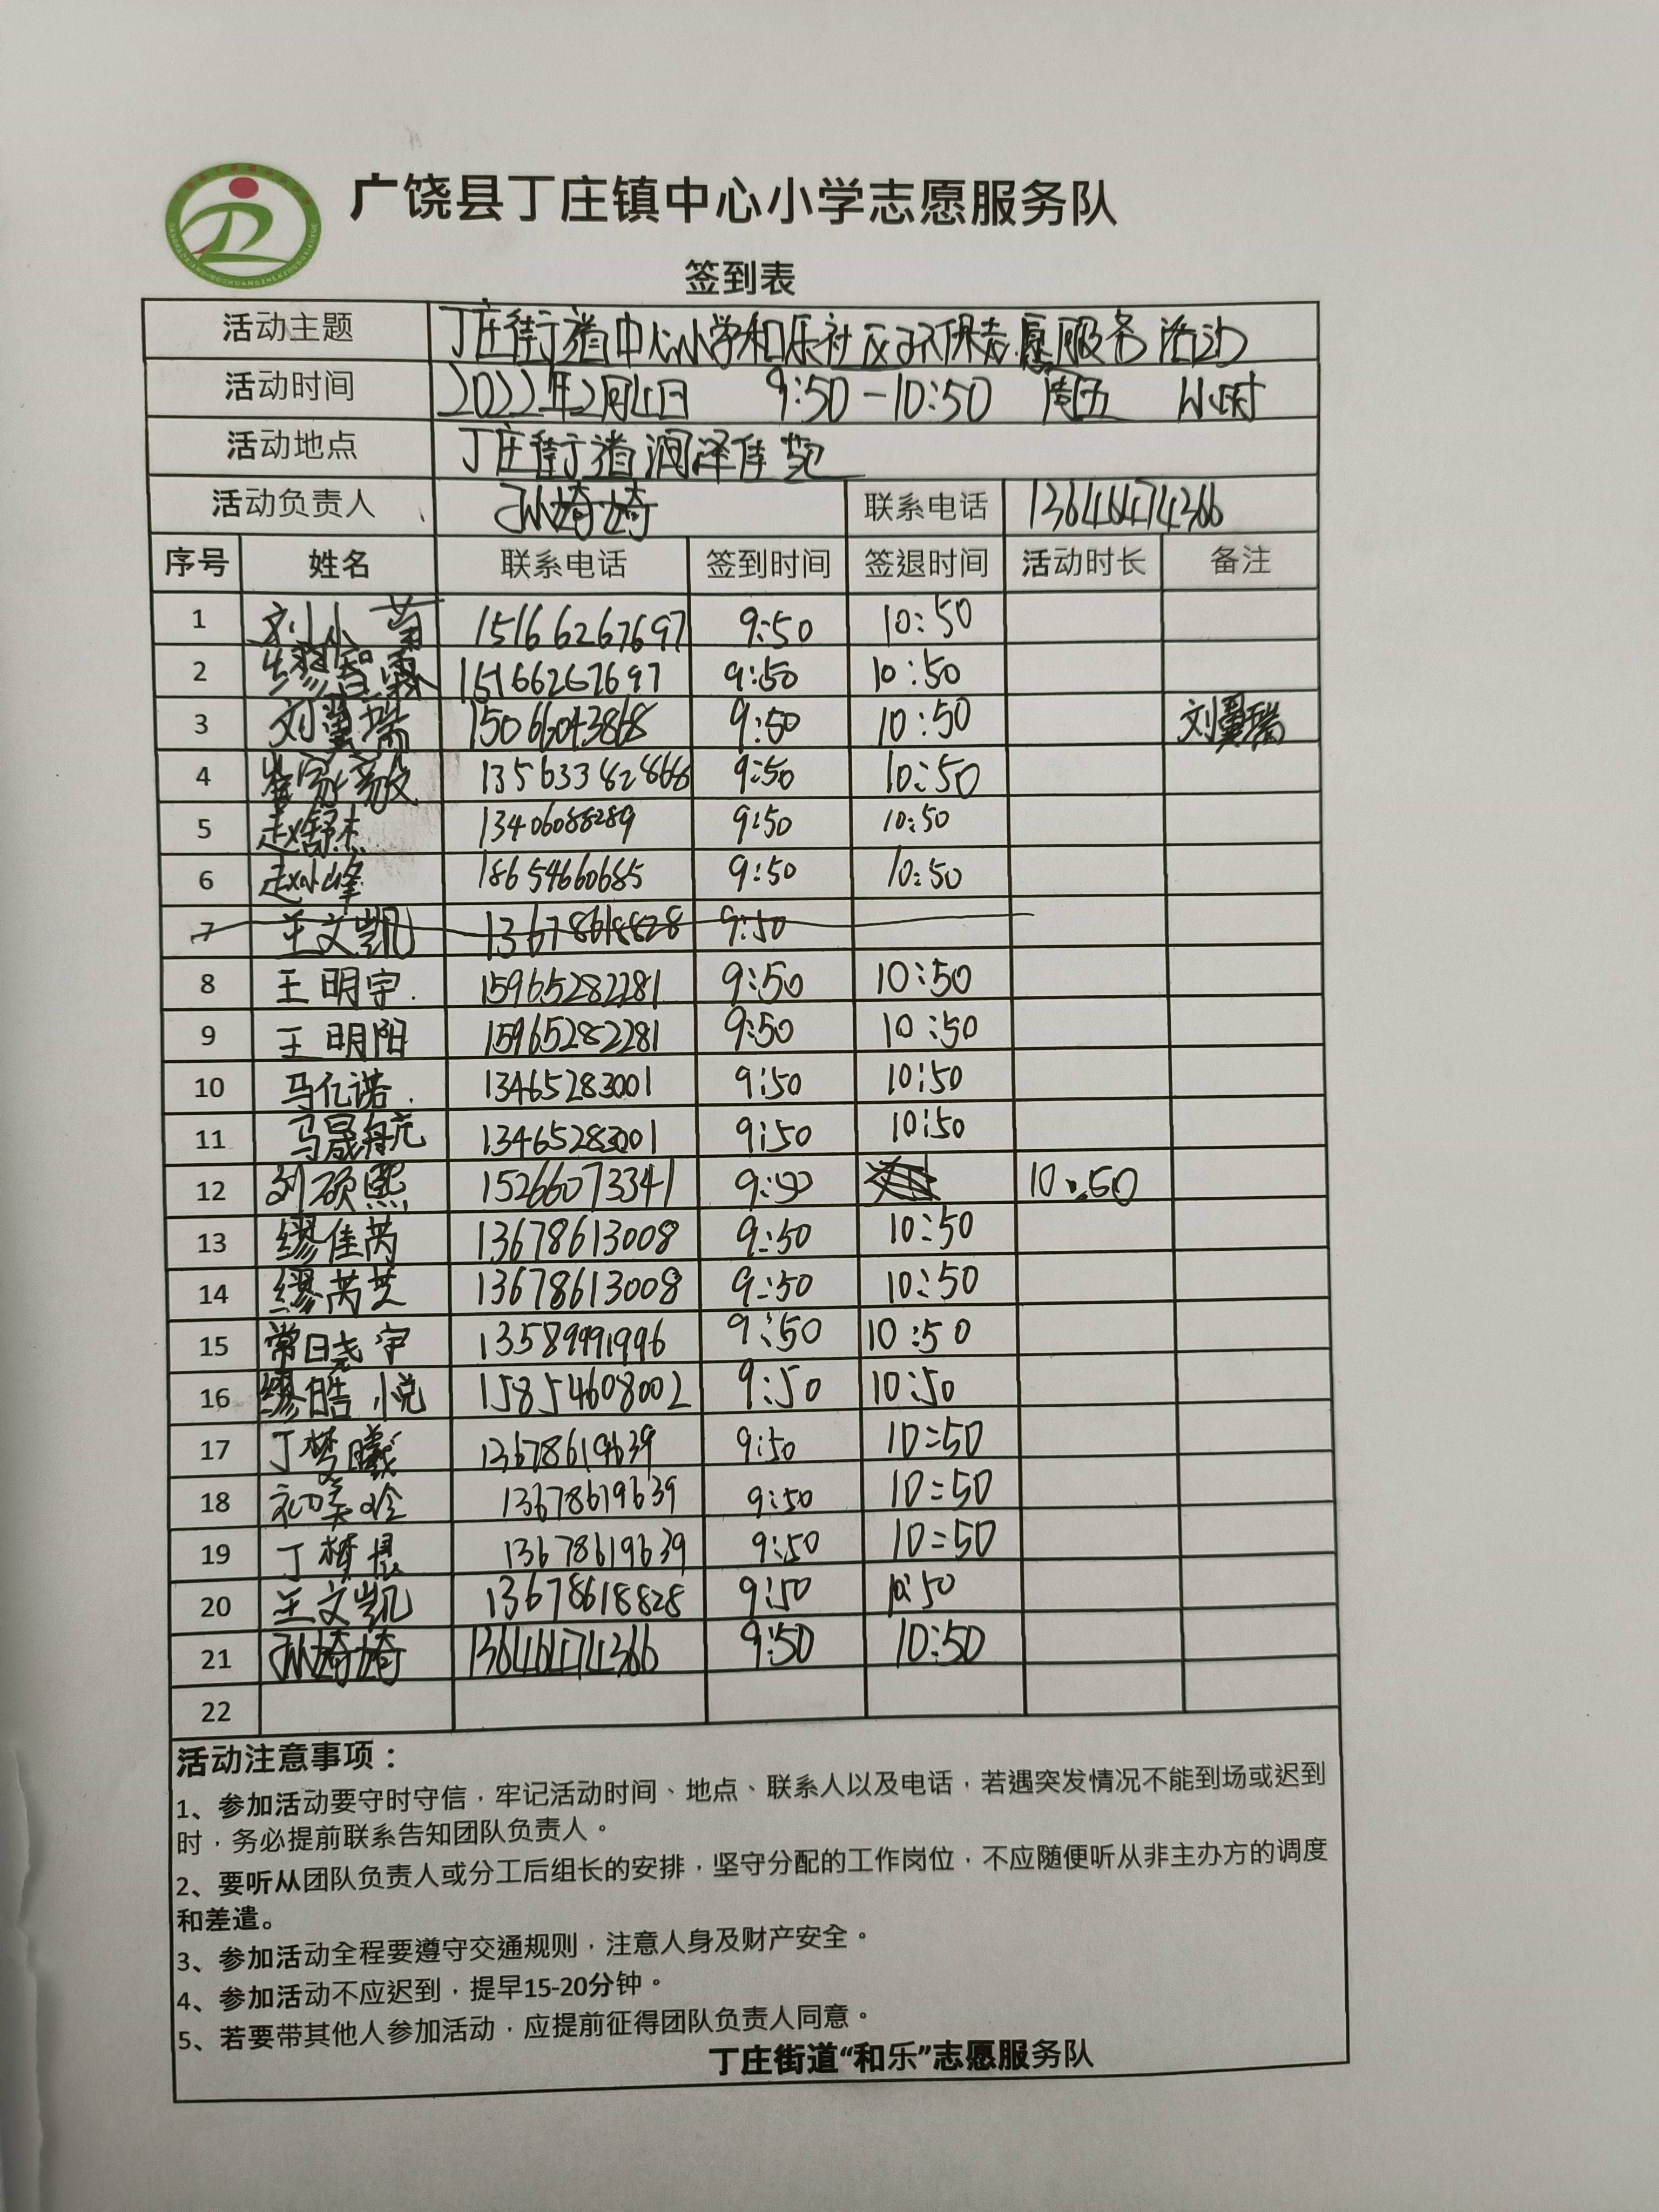 广饶县丁庄镇中心小学志愿服务队
签到表
活动主题 丁庄街道中心小学和乐社区环保志愿服务活动
活动时间 2022年2月4日 9:50-10:50 周五 1小时
活动地点 丁庄街道润泽佳苑
活动负责人 孙埼埼 联系电话 13646474366
序号 姓名 联系电话 签到时间 签退时间 活动时长 备注
1 刘小菊 15166267697 9:50 10:50
2 缪智霖 15166267697 9:50 10:50
3 刘翼瑞 15066043868 9:50 10:50 刘翼瑞
4 13563382868 9:50 10:50
5 赵舒杰 13406088289 9:50 10:50
6 赵小峰 18654660685 9:50 10:50
7 王文凯 13678618828 9:50
8 王明宇 15965282281 9:50 10:50
9 王明阳 15965282281 9:50 10:50
10 马亿诺 13465283001 9:50 10:50
11 马晟航 13465283001 9:50 10:50
12 刘硕熙 15266073341 9:50 10:50
13 缪佳芮 13678613008 9:50 10:50
14 缪芮芝 13678613008 9:50 10:50
15 常晓宇 13589991996 9:50 10:50
16 缪皓悦 15854608002 9:50 10:50
17 丁梦曦 13678619639 9:50 10:50
18 13678619639 9:50 10:50
19 丁梦 13678619639 9:50 10:50
20 王文凯 13678618828 9:50 10:50
21 孙埼埼 13646474366 9:50 10:50
22
活动注意事项：
1、参加活动要守时守信，牢记活动时间、地点、联系人以及电话，若遇突发情况不能到场或迟到
时，务必提前联系告知团队负责人。
2、要听从团队负责人或分工后组长的安排，坚守分配的工作岗位，不应随便听从非主办方的调度
和差遣。
3、参加活动全程要遵守交通规则，注意人身及财产安全。
4、参加活动不应迟到，提早15-20分钟。
5、若要带其他人参加活动，应提前征得团队负责人同意。
丁庄街道“和乐”志愿服务队